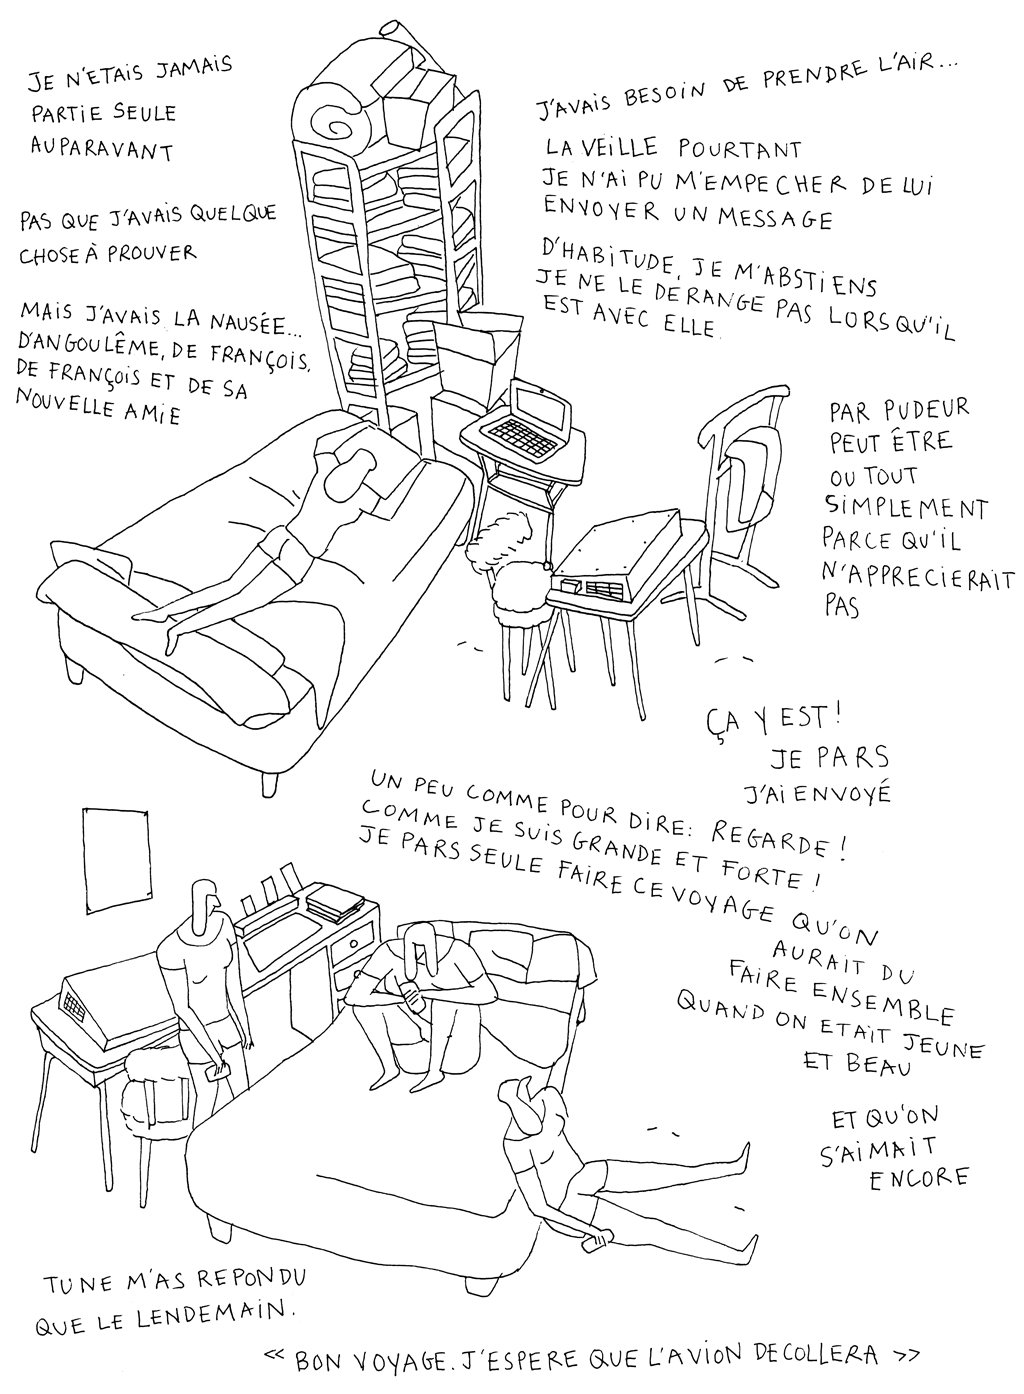 JE N'ETAIS JAMAIS
PARTIE SEULE
AUPARAVANT
PAS QUE J'AVAIS QUELQUE
CHOSE À PROUVER
MAIS J'AVAIS LA NAUSÉE...
D'ANGOULÊME, DE FRANÇOIS,
DE FRANÇOIS ET DE SA
NOUVELLE AMIE
J'AVAIS BESOIN DE PRENDRE L'AIR...
LA VEILLE POURTANT
JE N'AI PU M'EMPECHER DE LUI
ENVOYER UN MESSAGE
D'HABITUDE, JE M'ABSTIENS
JE NE LE DERANGE PAS LORSQU'IL
EST AVEC ELLE.
PAR PUDEUR
PEUT ÊTRE
OU TOUT
SIMPLEMENT
PARCE QU'IL
N'APPRECIERAIT
PAS
ÇA Y EST!
JE PARS
J'AI ENVOYÉ
UN PEU COMME POUR DIRE: REGARDE!
COMME JE SUIS GRANDE ET FORTE!
JE PARS SEULE FAIRE CE VOYAGE QU'ON
AURAIT DU
FAIRE ENSEMBLE
QUAND ON ETAIT JEUNE
ET BEAU
ET QU'ON
S'AIMAIT
ENCORE
TU NE M'AS REPONDU
QUE LE LENDEMAIN.
<< BON VOYAGE. J'ESPERE QUE L'AVION DECOLLERA >>